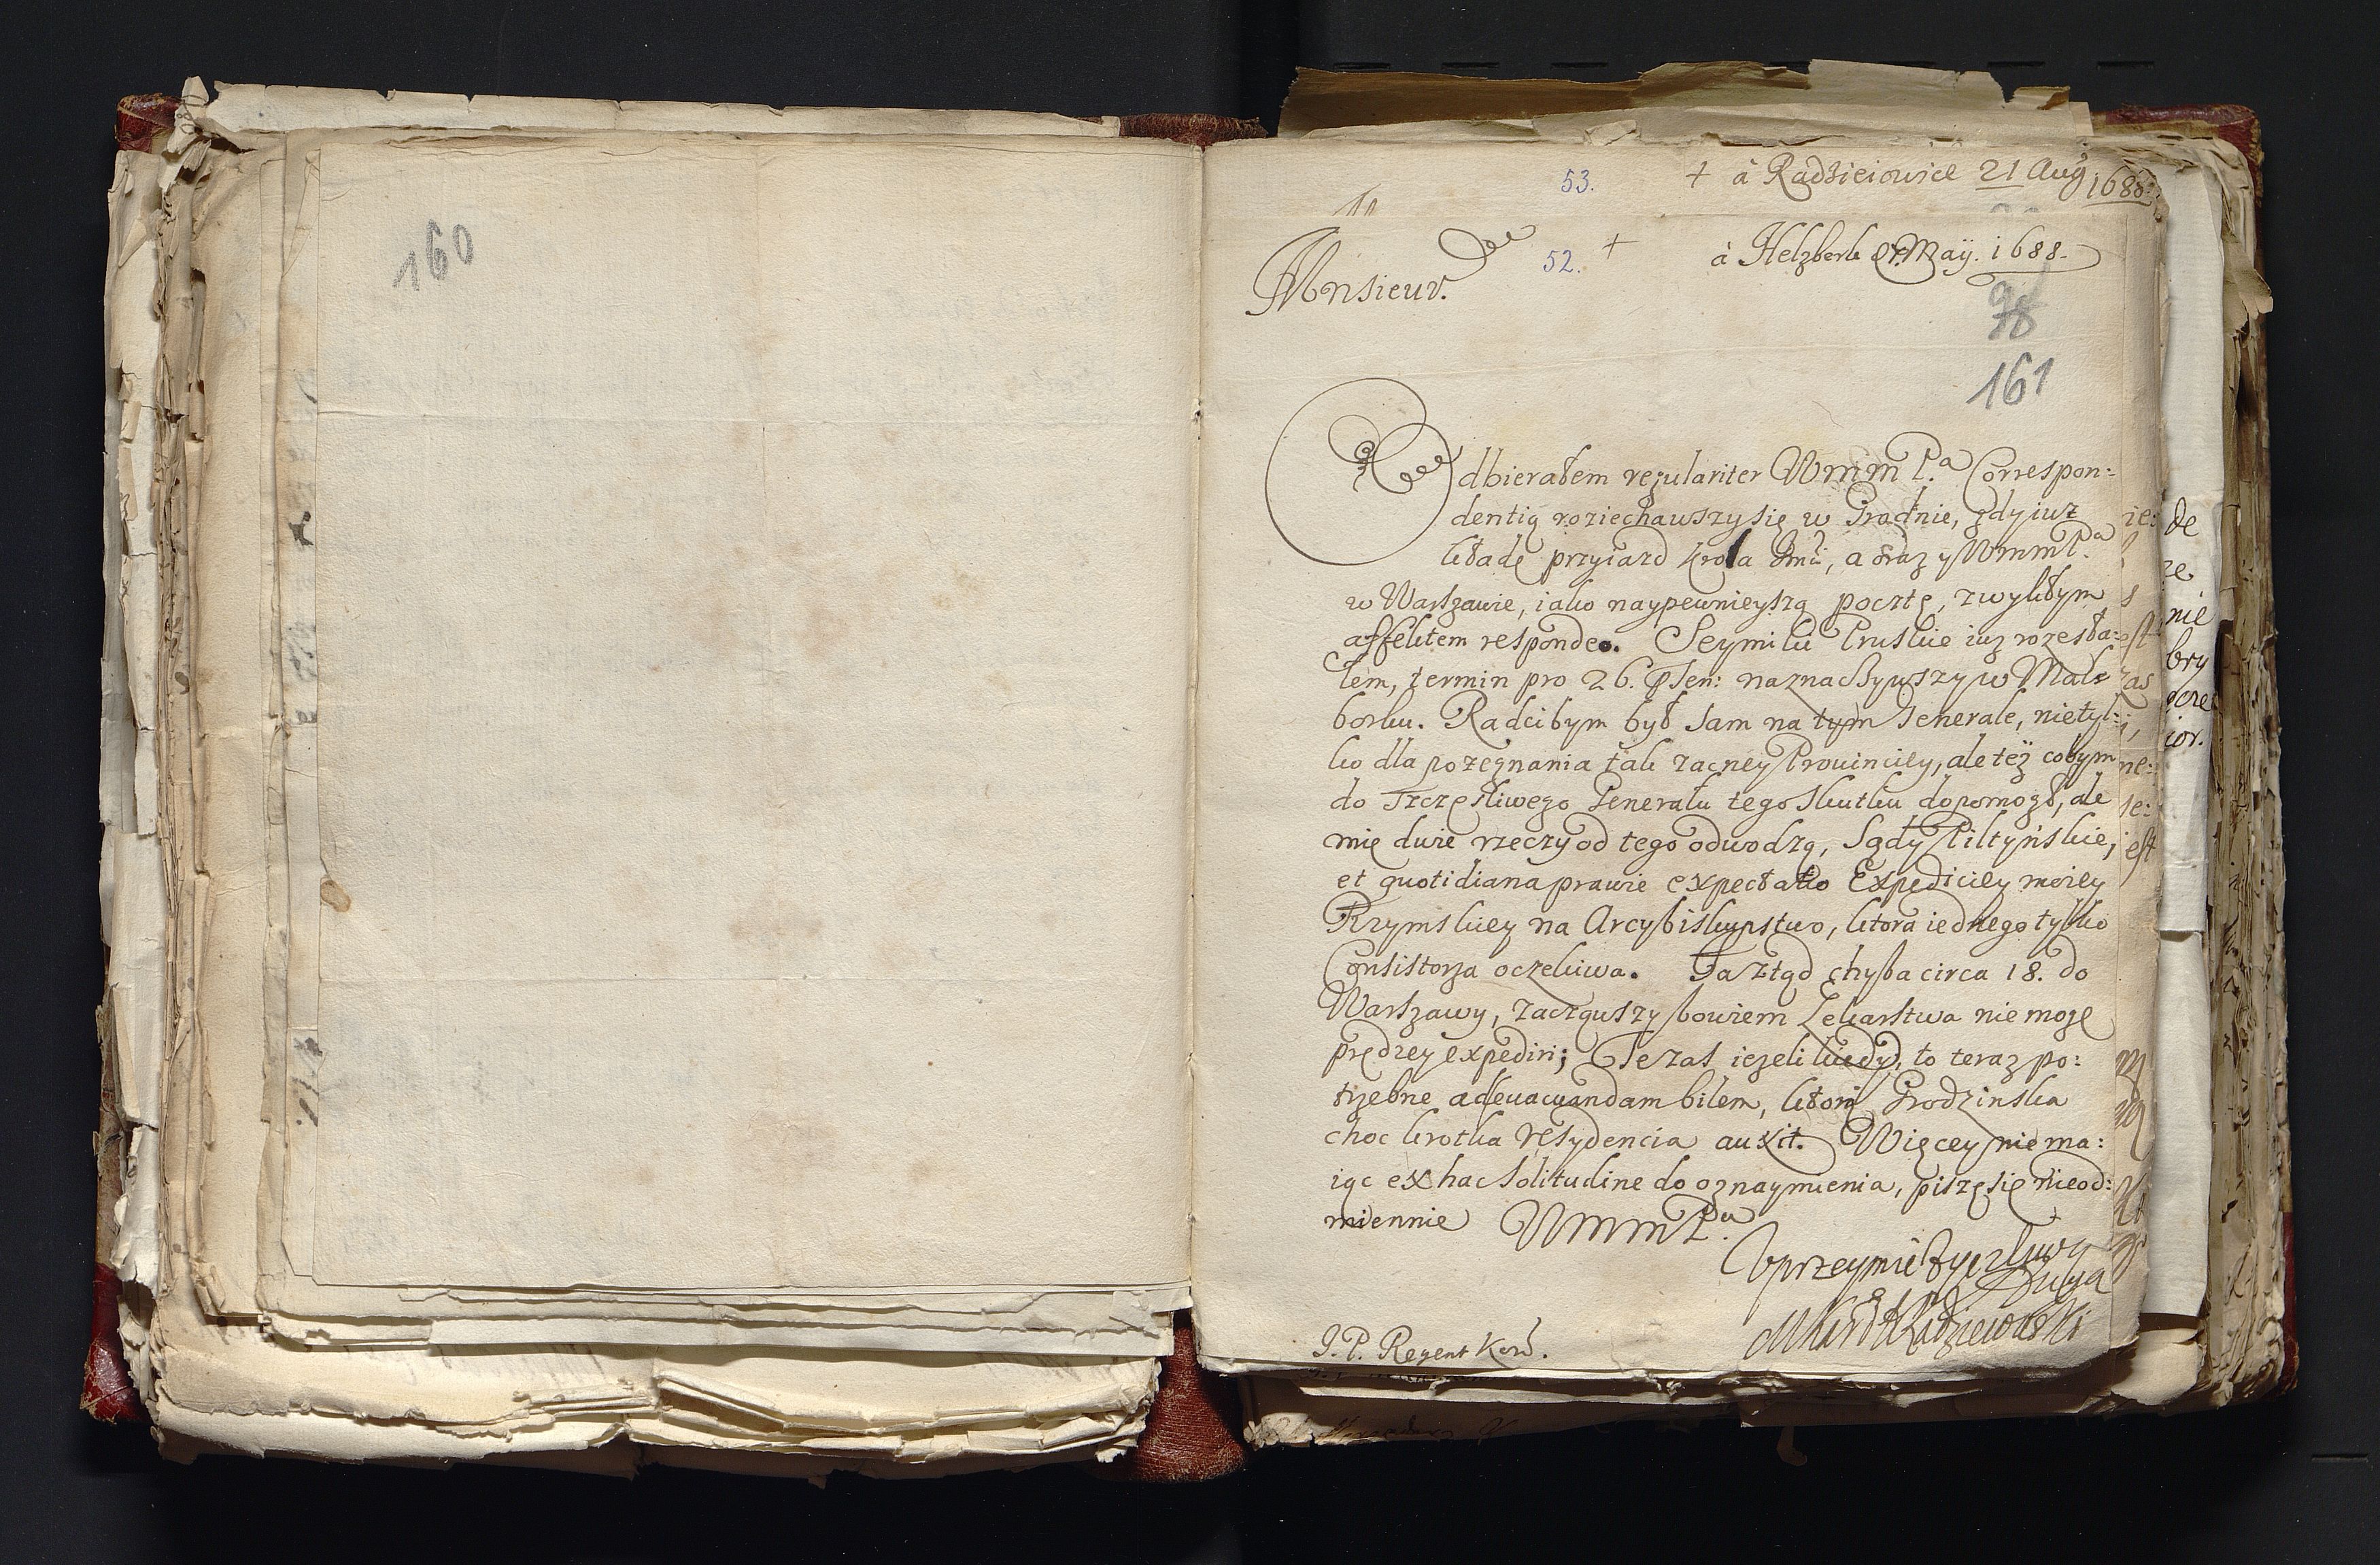 160
53. + à Radzieiowice 21 Aug 1688
Monsieur.
52. + à Helzberk Maÿ. 1688.
98
161
Odbierałem regulariter WmmPa Correspon:
dentią roziechawszy się w Grodnie, gdy iuż
kładę przyiazd Krola Jmći, a oraz y WmmPa
w Warszawie, iako naypewnieyszą pocztę, zwykłym
affektem respondeo. Seymiki Pruskie iuz rozesła:
łem, termin pro 26. Psen: naznaczywszy w Mal:
borku. Radcibym był sam na tym Generale, nietyl:
ko dla pozegnania tak zacney Prouinciey, ale też cobym
do szczęsliwego Generału tego skutku dopomogł, ale
mię dwie rzeczy od tego odwodzą, Sądy Piltyńskie,
et quotidiana prawie expectatio Expediciey moiey
Rzymskiey na Arcybiskupstwo, ktora iednego tylko
Consistorza oczekiwa. Ja ztąd chyba circa 18. do
Warszawy, zacząwszy bowiem Lekarstwa nie mogę
prędzey expediri; Te zas iezeli kiedy, to teraz po:
trzebne ad euacuandam bilem, ktorą Grodzinska
choc krotka resydencia auxit. Więcey nie ma:
iąc ex hac solitudine do oznaymienia, piszę się nieod:
miennie WmmPa
Uprzeymie życzliwy
Sługa
MKard Radzieiowski
J.P. Regent Kor.